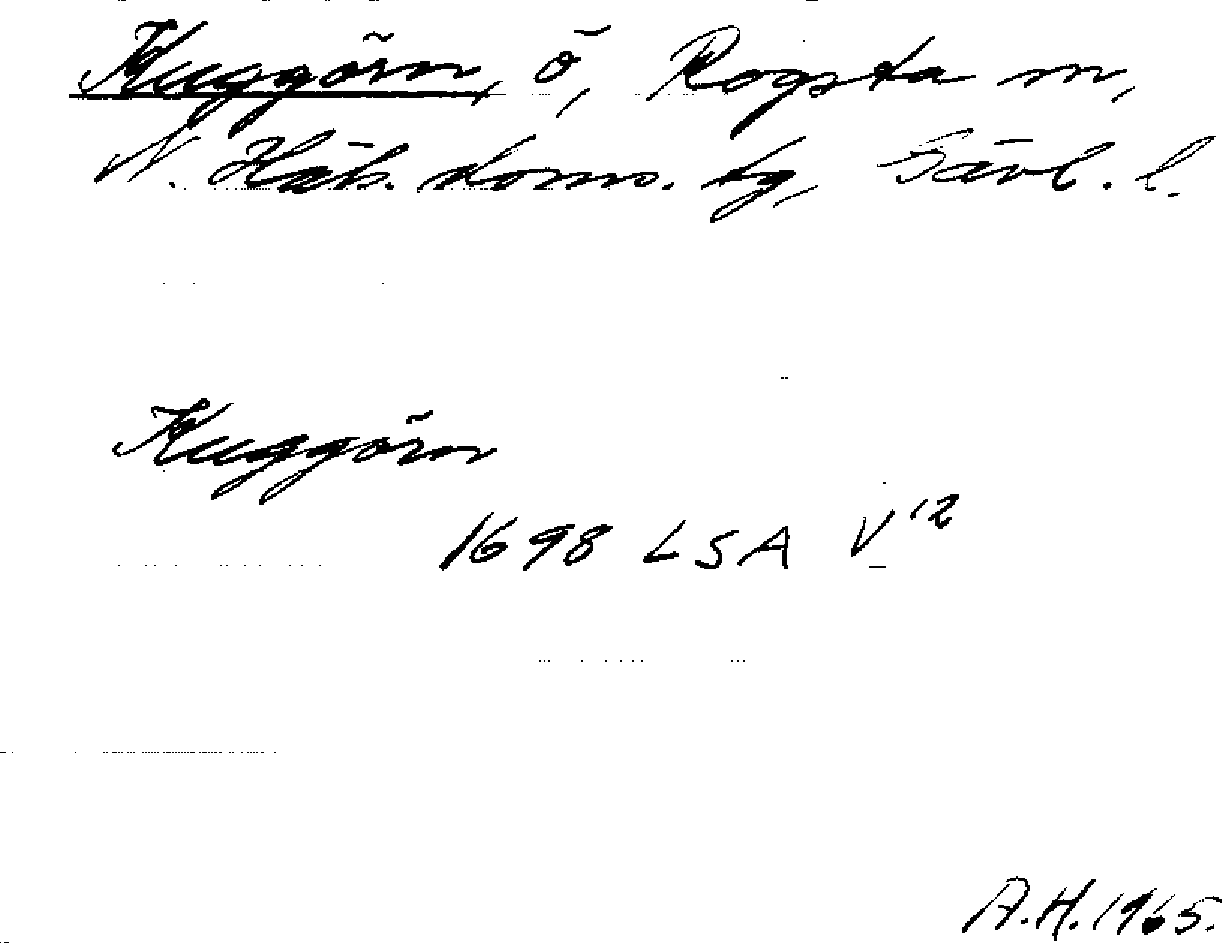 Kuggörn, ö, Rogsta sn,
N. Häls. doms. tg, Gävl. l.
Kuggörn
1698 LSA V¹²
A.H. 1965.